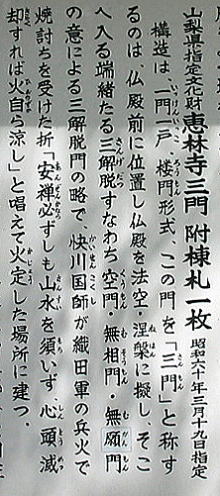 山梨県指定文化財 恵林寺三門 附棟札一枚 昭和六十年三月十九日指定
構造は、一門一戸、楼門形式、この門を「三門」と称す
るのは、仏殿前に位置し仏殿を法空・涅槃に擬し、そこ
へ入る端緒たる三解脱門すなわち空門・無相門・無願門
の意による三解脱門の略で、快川国師が織田軍の兵火で
焼討ちを受けた折「安禅必ずしも山水を須いず、心頭滅
却すれば火自ら涼し」と唱えて火定した場所に建つ。